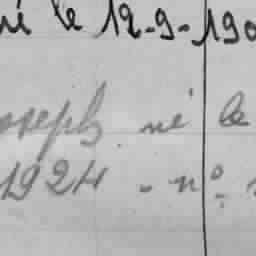 né le 12-9-190
oseph né le
1924 - nº